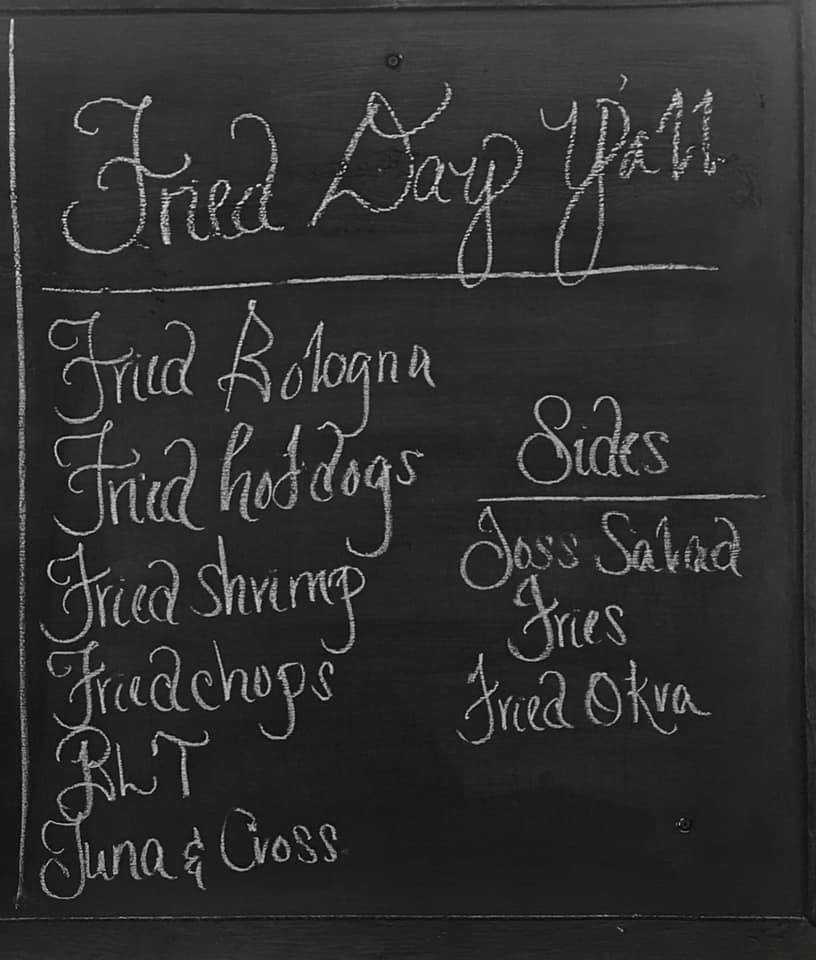 Fried Day Y'all
Fried Bologna
Fried hotdogs
Fried shrimp
Fried chops
BLT
Tuna & Cross
Sides
Toss Salad
Fries
Fried Okra